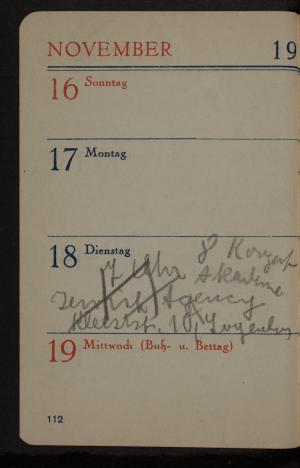 NOVEMBER 19
16 Sonntag
17 Montag
18 Dienstag
8 Konzert
7 Uhr Akademie
Jewish Agency
Kleiststr. 10/
19 Mittwoch (Buß- u. Bettag)
112